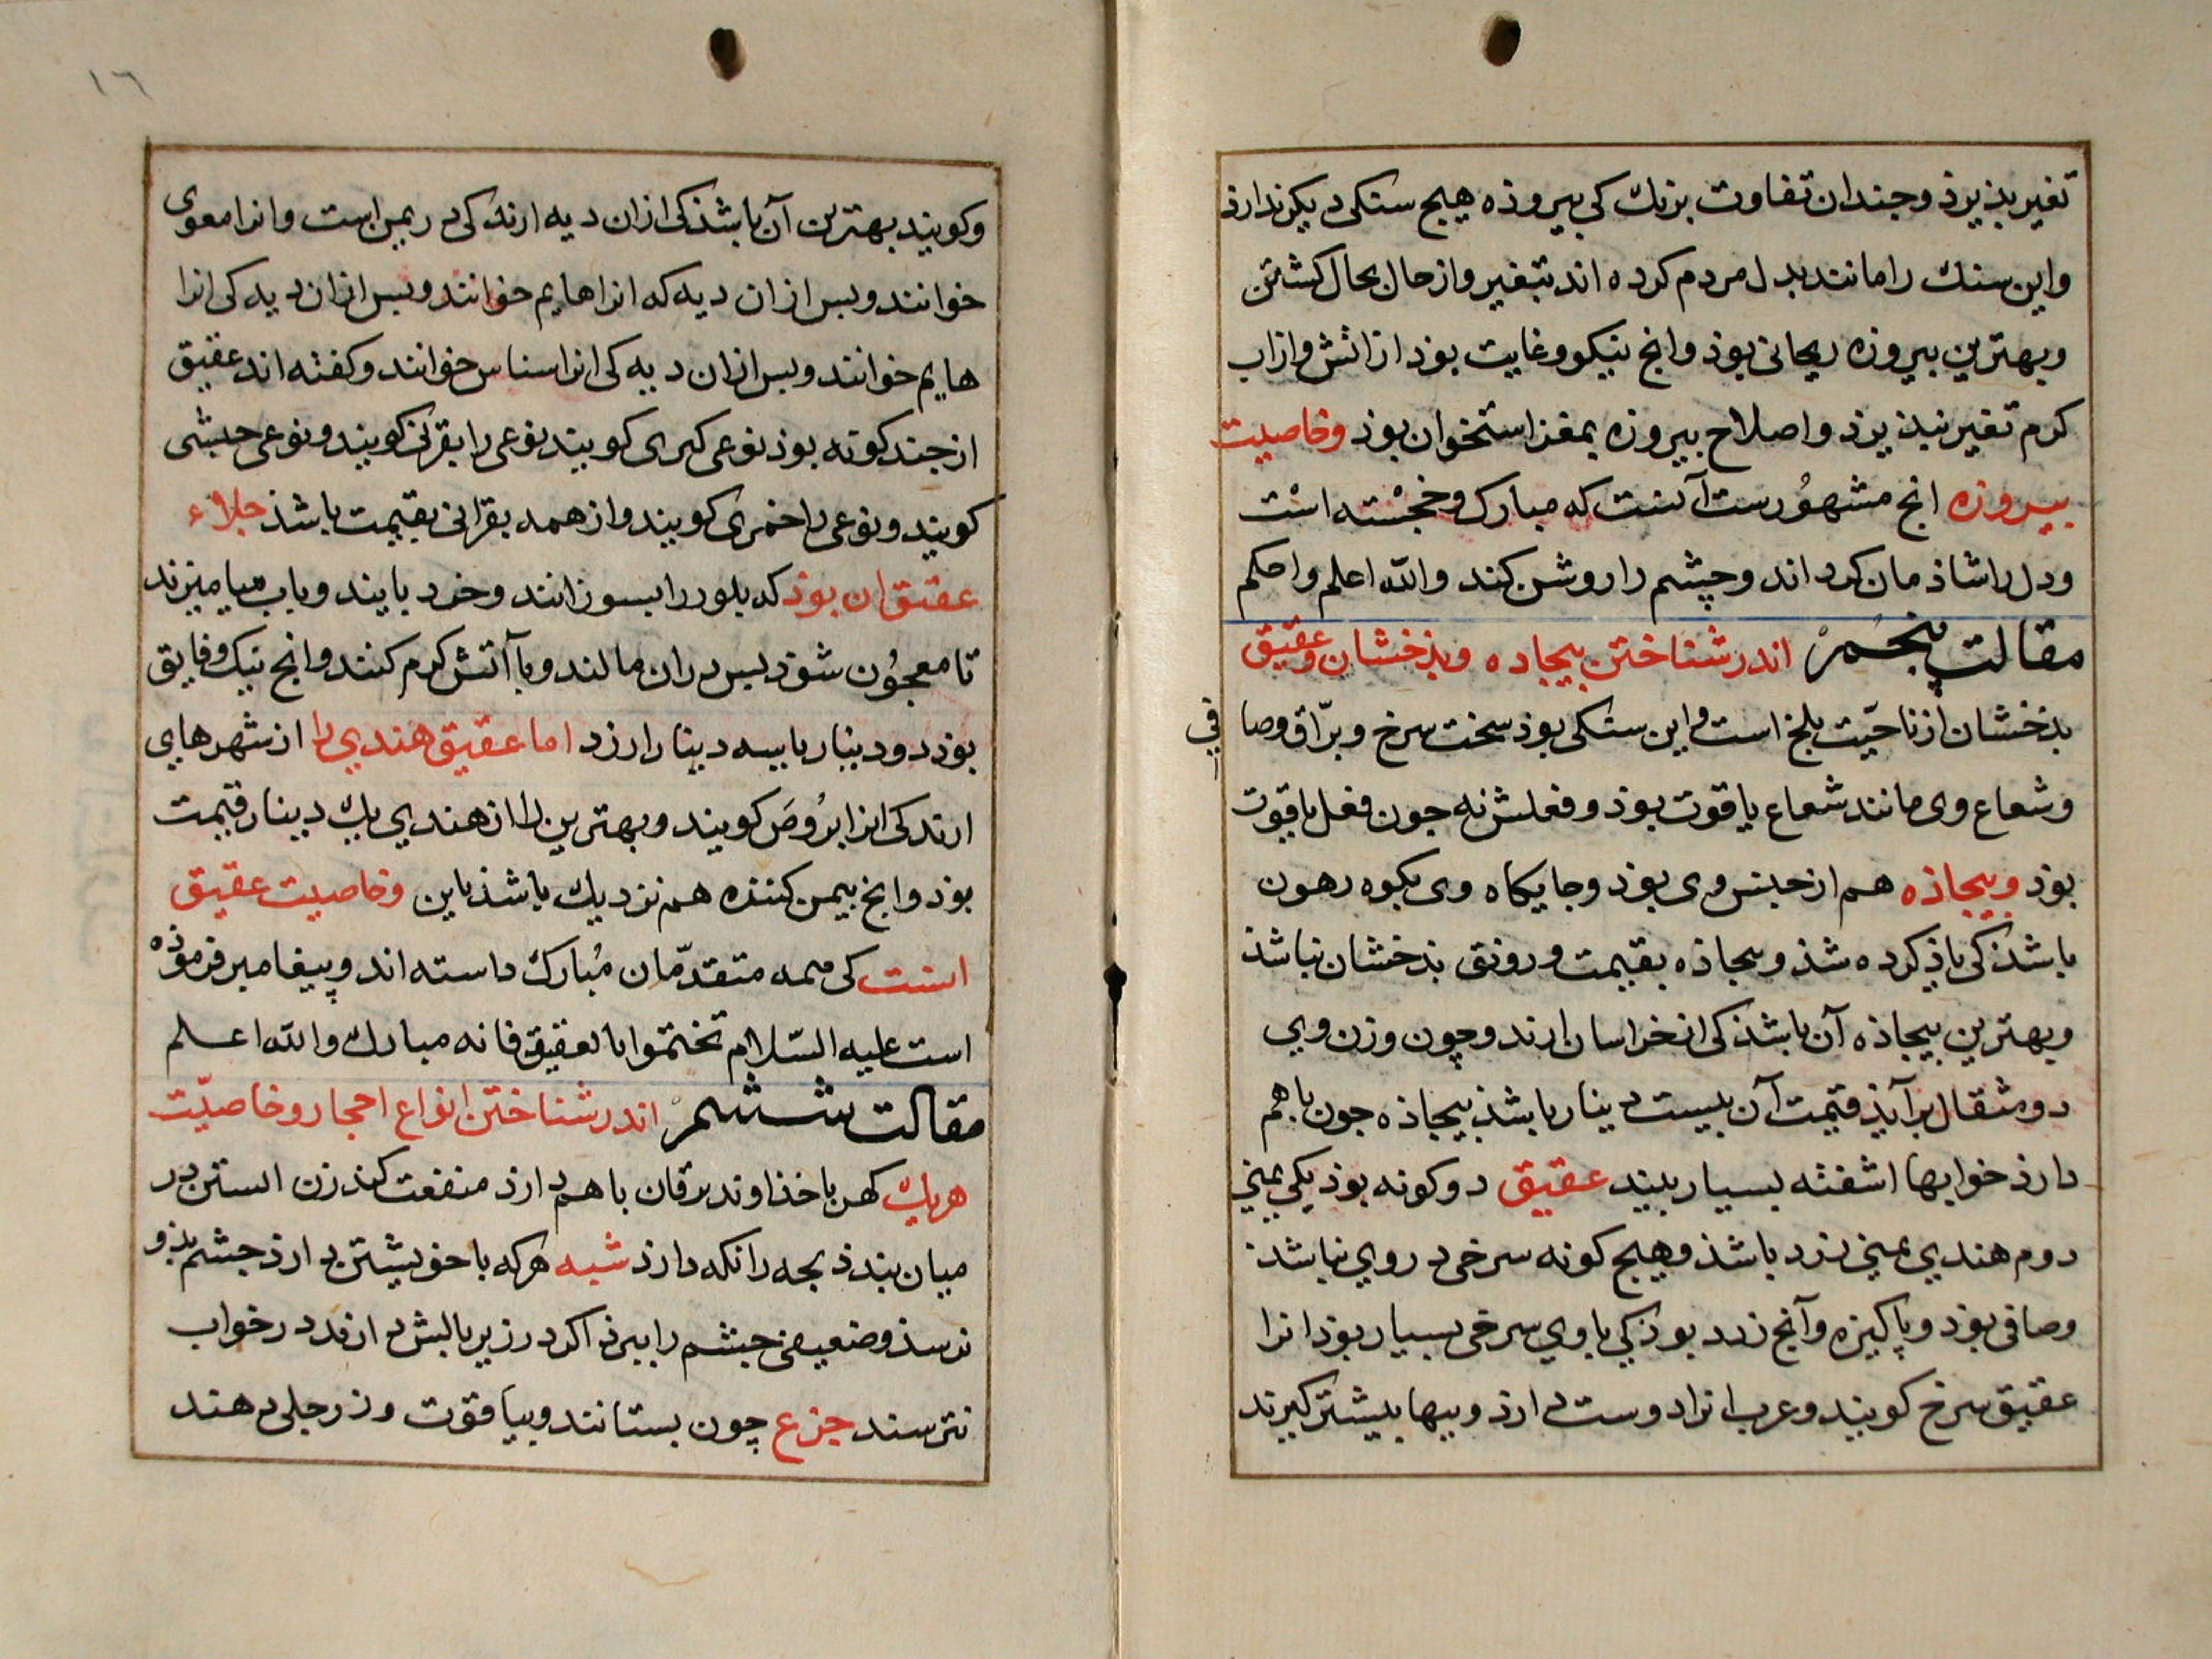 تغیر بذیرذ و جندان تفاوت برنك کی بیروذه هیج سنکی دیکر ندارذ
واین سنك را مانند بدل مردم کرده اند بتغیر واز حال بحال کشتن
وبهترین بیروزه ریحانی بوذ وانج نیکو وغایت بوذ از اتش واز اب
کرم تغیر نبذیرذ واصلاح بیروزه بمغز استخوان بوذ وخاصیت
بیروزه انج مشهورست آنست که مبارك وخجسته است
ودل را شاذمان کرداند وچشم را روشن کند والله اعلم واحکم
مقالت پنجم اندر شناختن بیجاده وبذخشان وعقیق
بذخشان از ناحیّت بلخ است واین سنکی بوذ سخت سرخ وبرّاق وصا فی
وشعاع وی مانند شعاع یاقوت بوذ وفعلش نه جون فعل یاقوت
بوذ وبیجاذه هم از جنس وی بوذ وجایکاه وی بکوه رهون
باشذ کی یاذ کرده شذ وبیجاذه بقیمت ورونق بذخشان نباشذ
وبهترین بیجاذه آن باشذ کی از خراسان ارند وچون وزن وی
دو مثقال برآیذ قیمت آن بیست دینار باشذ بیجاذه جون باهم
دارذ خوابها اشفته بسیار بیند عقیق دو کونه بوذ یکی یمنی
دوم هندی یمنی زرد باشذ وهیج کونه سرخی در روی نباشذ
وصافی بوذ وپاکیزه وآنج زرد بوذ کی باوی سرخی بسیار بوذ انرا
عقیق سرخ کویند وعرب انرا دوست دارذ وببها بیشتر کیرند
١٦
وکویند بهترین آن باشذ کی ازان دیه ارند کی در یمن است وانرا معوی
خوانند وبس ازان دیه که انرا هایم خوانند وبس ازان دیه کی انرا
هایم خوانند وبس ازان دیه کی انرا سناس خوانند وکفته اند عقیق
از جند کونه بوذ نوعی کبری کویند نوعی را بقرانی کویند ونوعی حبشی
کویند ونوعی را خمری کویند واز همه بقرانی بقیمت باشذ جلاء
عقیق ان بوذ که بلور را بسوزانند وخرد بایند وباب میامیزند
تا معجون شوذ بس دران مالند وبا آتش کرم کنند وانج نیك وفایق
بوذ دو دینار یا سه دینار ارزد اما عقیق هندی را از شهرهای
ارند کی انرا بروص کویند وبهترین را از هندی یك دینار قیمت
بوذ وانج بیمن کننده هم نزدیك باشذ باین وخاصیت عقیق
انست کی همه متقدّمان مبارك داسته اند وپیغامبر فرموذه
است علیه السّلام تختموا بالعقیق فانه مبارك والله اعلم
مقالت ششم اندر شناختن انواع احجار وخاصیّت
هریك کهربا خذاوند یرقان باهم دارذ منفعت کند زن ابستن در
میان بندذ بجه را نکه دارذ شبه هرکه با خویشتن دارذ چشم بذو
نرسذ وضعیفی چشم را ببرذ اکر در زیر بالش دارند در خواب
نترسند جزع چون بستانند وبیاقوت وزر حلی دهند